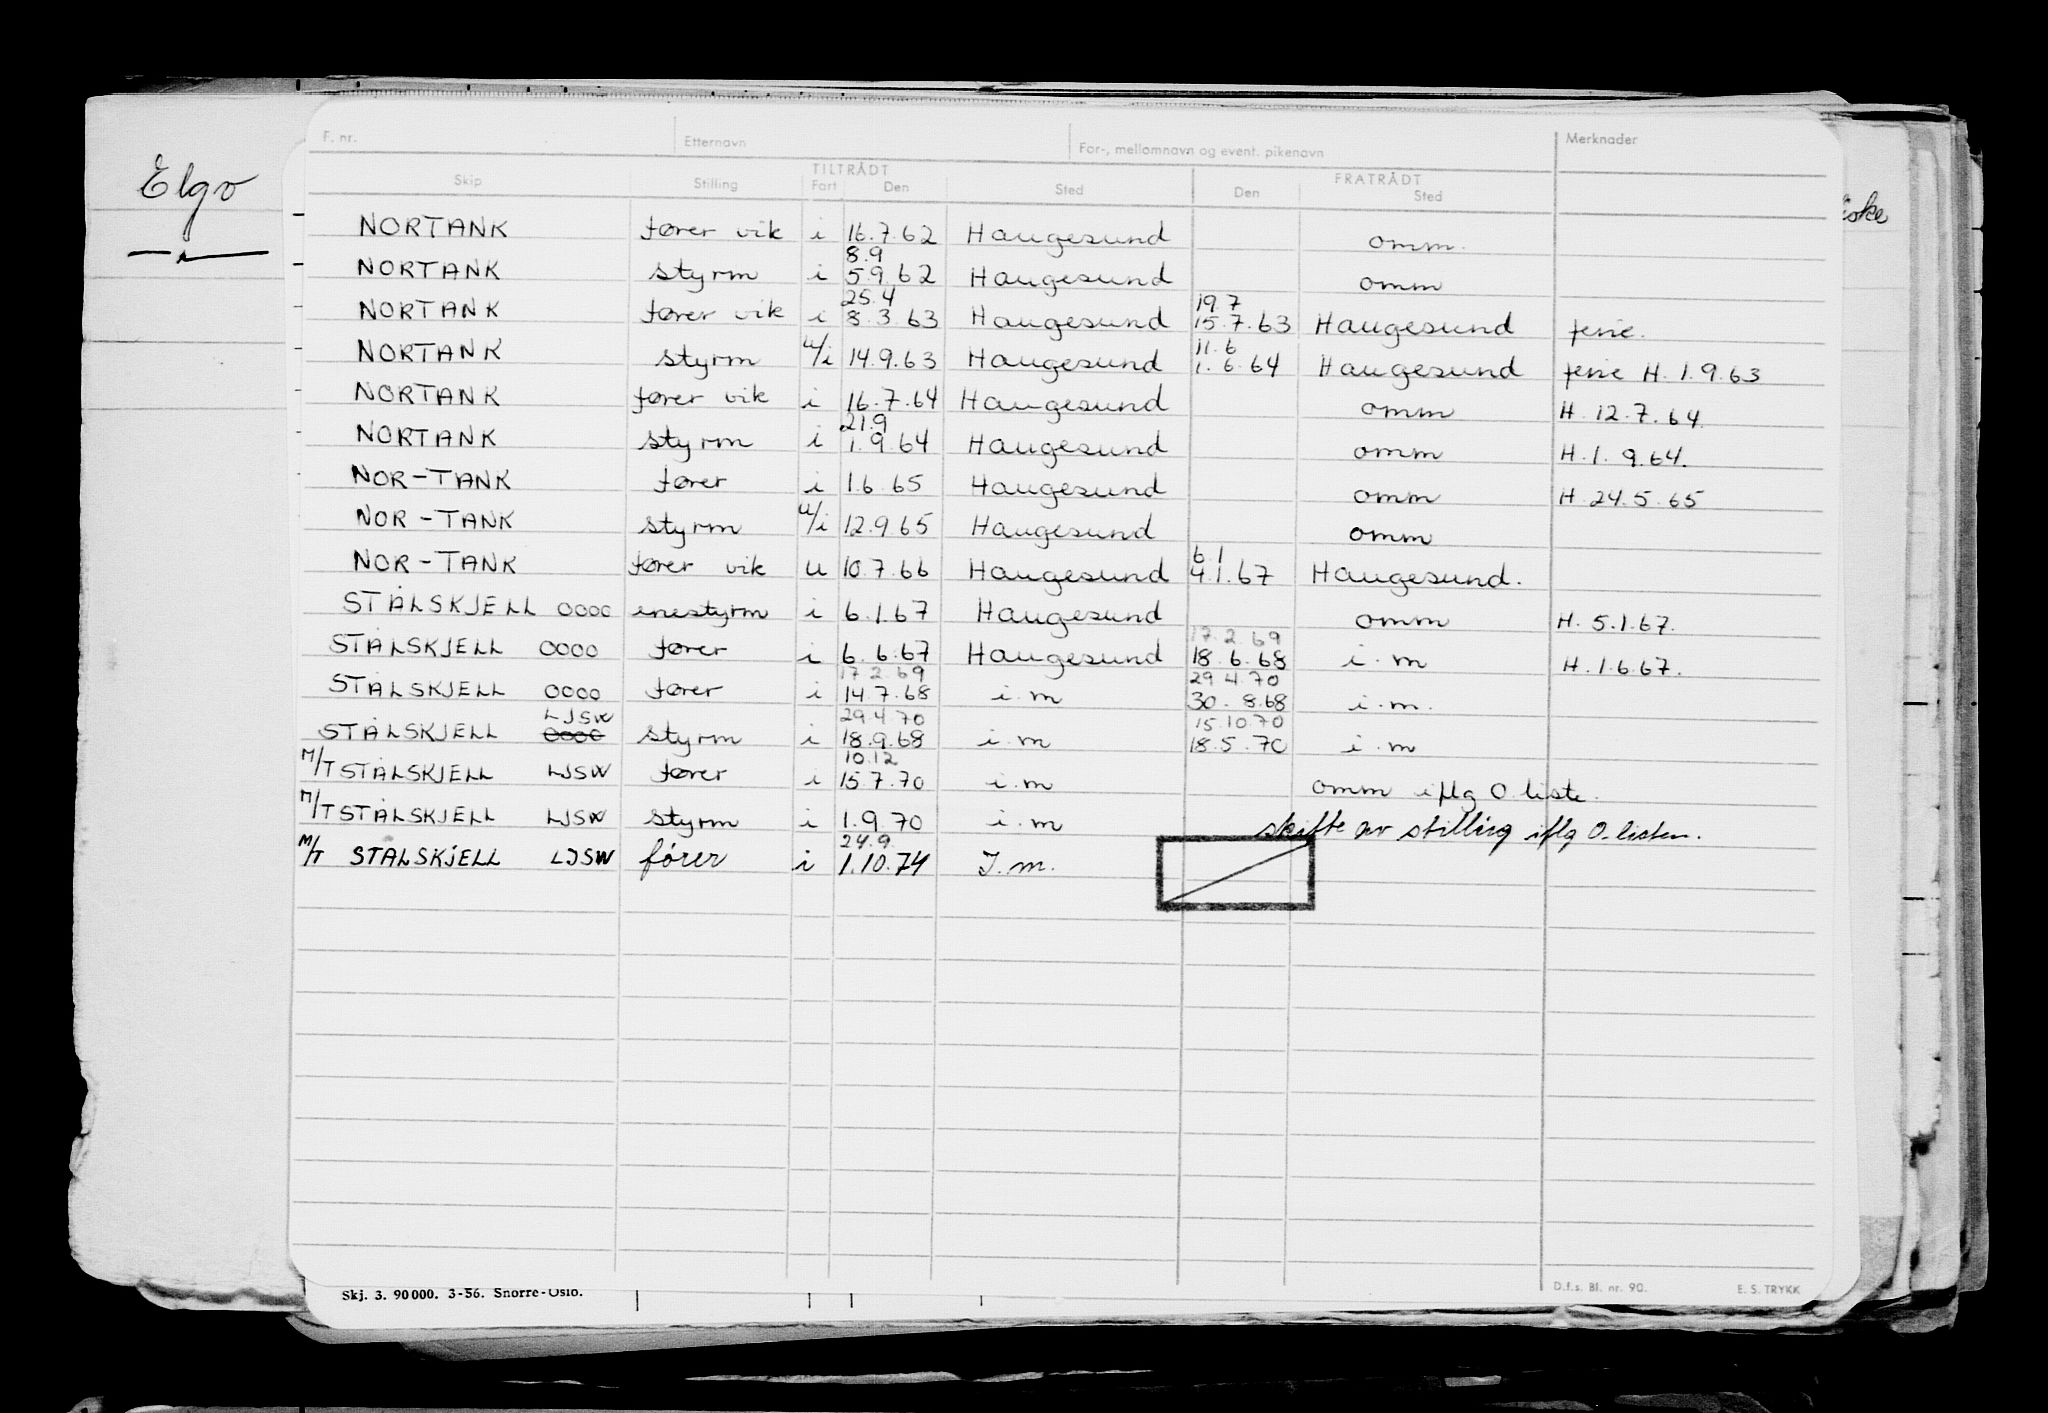 Elgv
iske
F. nr. Etternavn For-, mellomnavn og event. pikenavn Merknader
TILTRÅDT FRATRÅDT
Skip Stilling Fart Den Sted Den Sted
NORTANK fører vik i 16.7.62 Haugesund omm.
8.9
NORTANK styrm i 5.9.62 Haugesund omm
25.4 19.7
NORTANK fører vik i 8.3.63 Haugesund 15.7.63 Haugesund ferie.
11.6
NORTANK styrm u/i 14.9.63 Haugesund 1.6.64 Haugesund ferie H. 1.9.63
NORTANK fører vik i 16.7.64 Haugesund omm H. 12.7.64
21.9
NORTANK styrm i 1.9.64 Haugesund omm H. 1.9.64.
NOR-TANK fører i 1.6.65 Haugesund omm H. 24.5.65
NOR-TANK styrm u/i 12.9.65 Haugesund omm
6.1
NOR-TANK fører vik u 10.7.66 Haugesund 4.1.67 Haugesund.
STÅLSKJELL OOOO enestyrm i 6.1.67 Haugesund omm H. 5.1.67.
17.2.69
STÅLSKJELL OOOO fører i 6.6.67 Haugesund 18.6.68 i.m H. 1.6.67.
17.2.69 29.4.70
STÅLSKJELL OOOO fører i 14.7.68 i.m 30.8.68 i.m.
LJSW 29.4.70 15.10.70
STÅLSKJELL OOOO styrm i 18.9.68 i.m 18.5.70 i.m
10.12
M/T STÅLSKJELL LJSW fører i 15.7.70 i.m omm iflg O.liste.
M/T STÅLSKJELL LJSW styrm i 1.9.70 i.m skifte av stilling iflg O.listen.
24.9
M/T STÅLSKJELL LJSW fører i 1.10.74 I.m.
D.f.s. Bl. nr. 90. E. S. TRYKK
Skj. 3. 90000. 3-56. Snorre-Oslo.